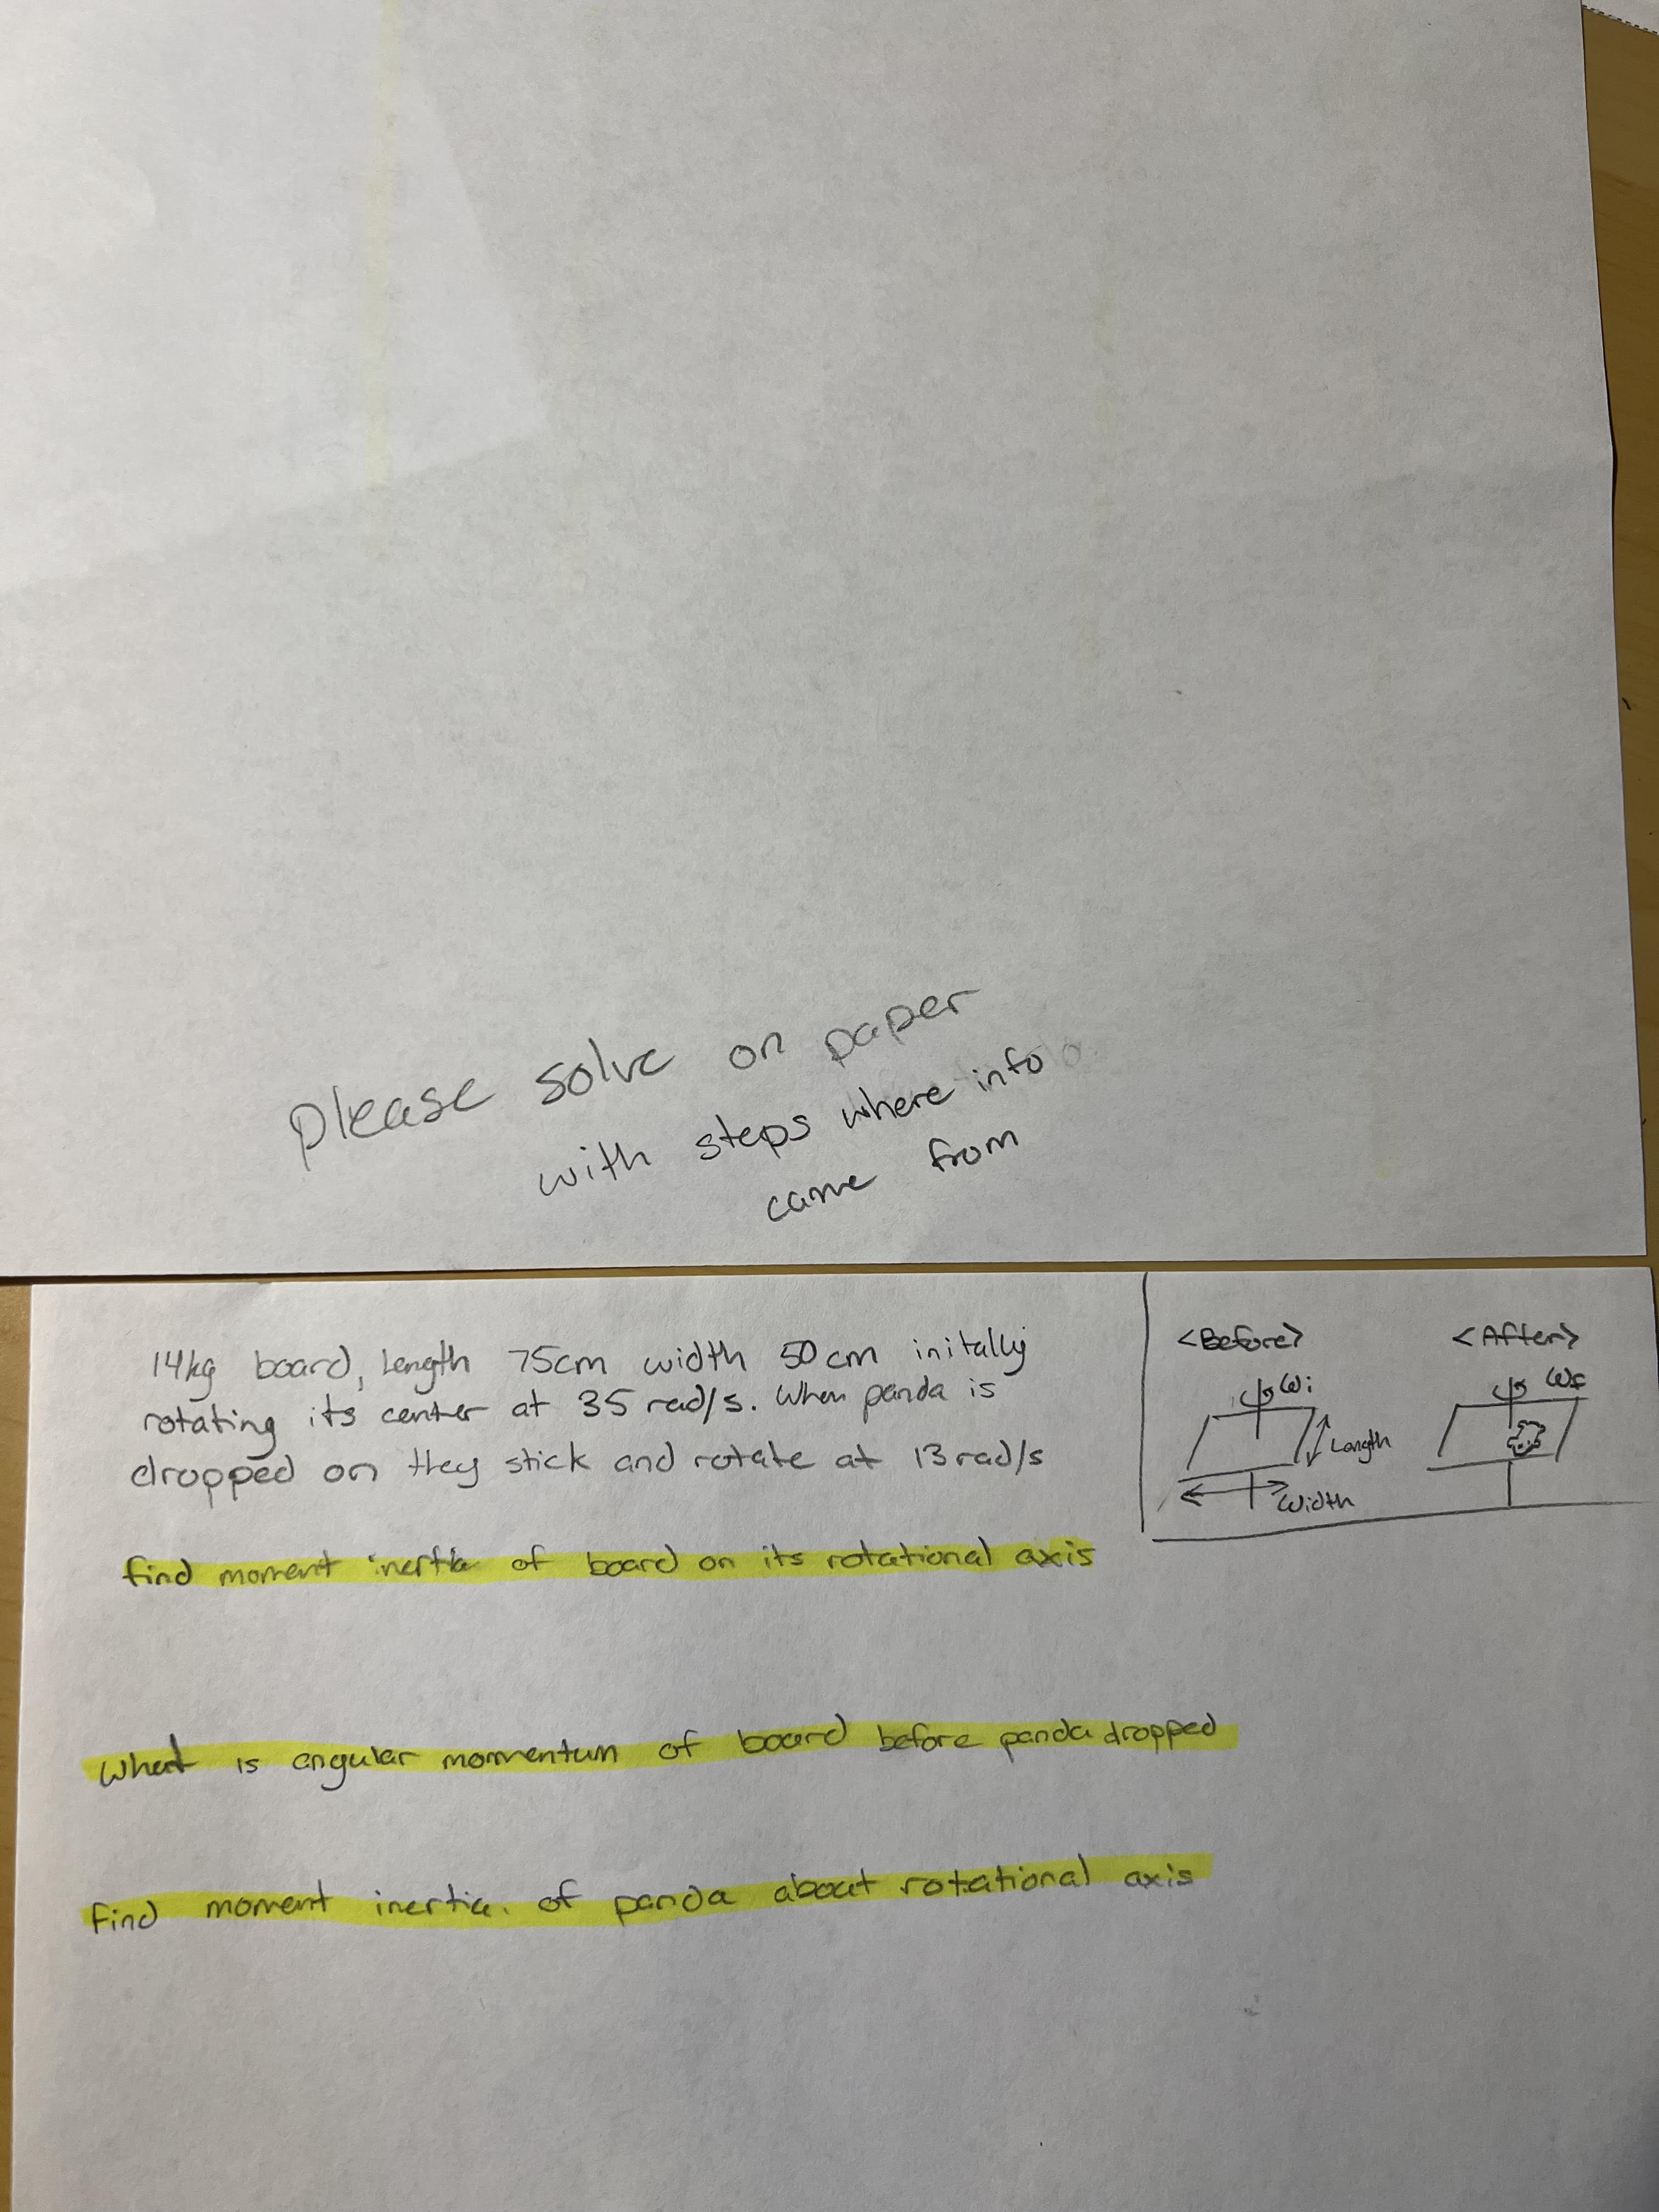 please solve on paper
with steps where info
came from
14kg board, Length 75cm width 50cm initally
rotating its center at 35 rad/s. When panda is
dropped on they stick and rotate at 13 rad/s
<Before>
<After>
ωi
ωf
Length
Width
find moment inertia of board on its rotational axis
What is angular momentum of board before panda dropped
find moment inertia. of panda about rotational axis